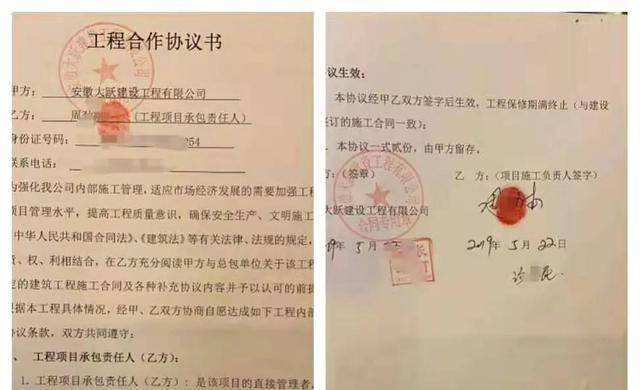 工程合作协议书
甲方：安徽大跃建设工程有限公司
乙方：周（工程项目承包责任人）
身份证号码：254
联系电话：
为强化我公司内部施工管理，适应市场经济发展的需要加强工程
项目管理水平，提高工程质量意识，确保安全生产、文明施工
中华人民共和国合同法》、《建筑法》等有关法律、法规的规定，
责、权、利相结合，在乙方充分阅读甲方与总包单位关于该工程
定的建筑工程施工合同及各种补充协议内容并予以认可的前提
根据本工程具体情况，经甲、乙双方协商自愿达成如下工程内部
协议条款，双方共同遵守：
、工程项目承包责任人（乙方）：
1．工程项目承包责任人（乙方）：是该项目的直接管理者，
议生效：
本协议经甲乙双方签字后生效，工程保修期满终止（与建设
签订的施工合同一致）；
本协议一式贰份，由甲方留存。
方：（签章）
乙 方：（项目施工负责人签字）
大跃建设工程有限公司
合同专用章
19年5月
2019年5月22日